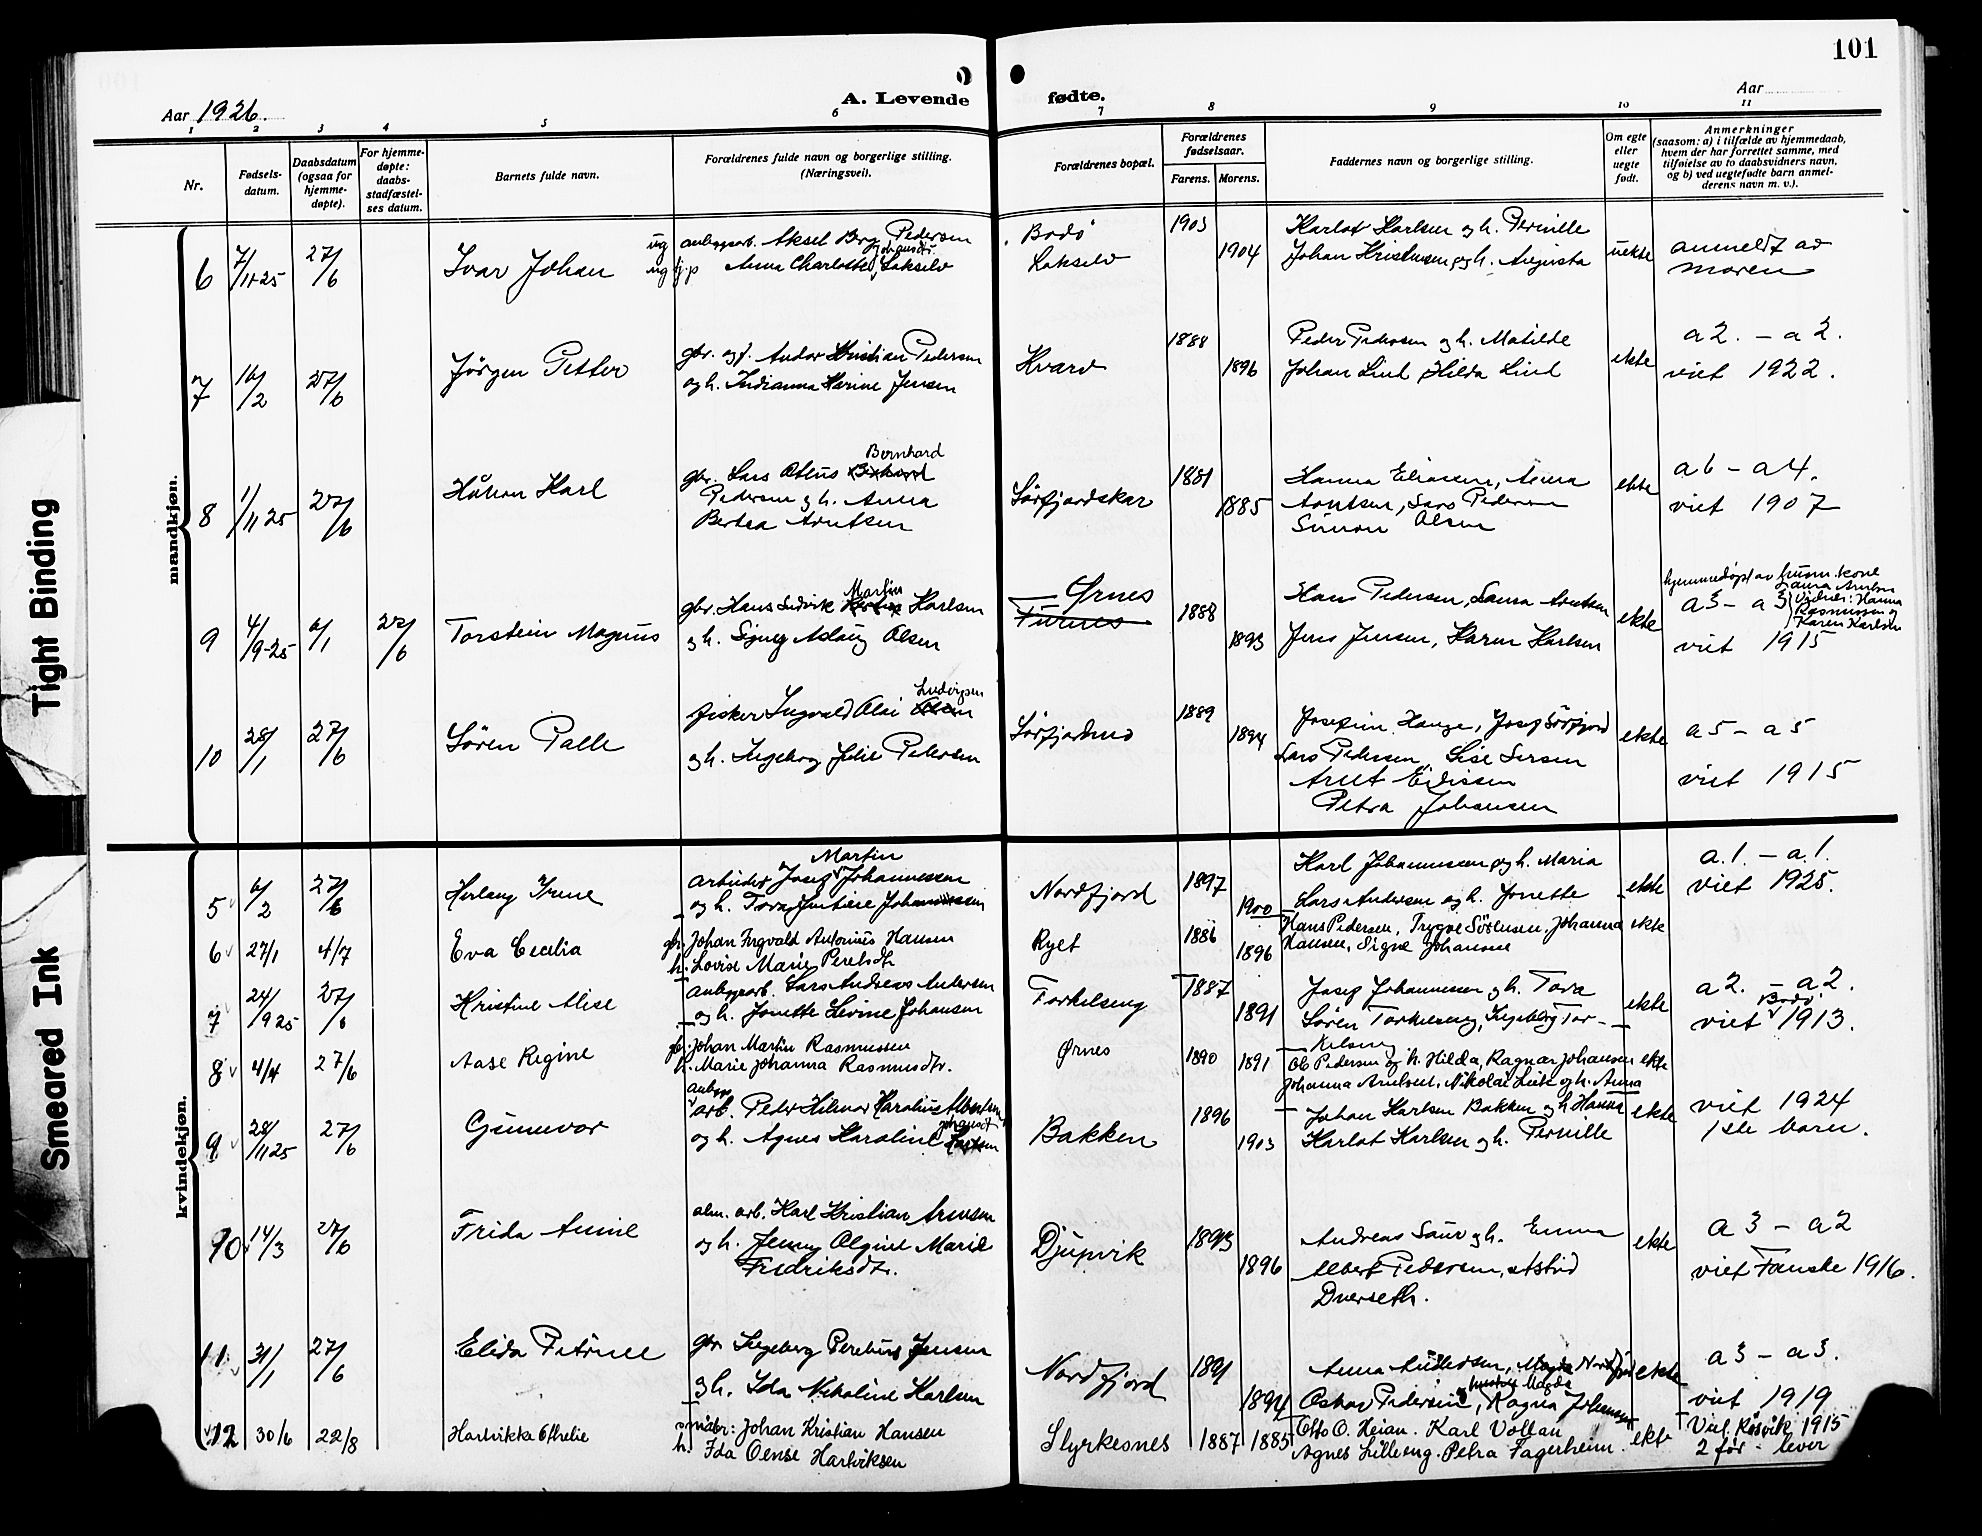 101
Aar 1926.
A. Levende
fødte.
Aar
1 2 3 4 5 6 7 8 9 10 11
Nr.
Fødsels-
datum.
Daabsdatum
(ogsaa for
hjemme-
døpte).
For hjemme-
døpte:
daabs-
stadfæstel-
ses datum.
Barnets fulde navn.
Forældrenes fulde navn og borgerlige stilling.
(Næringsvei).
Forældrenes bopæl.
Forældrenes
fødselsaar.
Farens. Morens.
Faddernes navn og borgerlige stilling.
Om egte
eller
uegte
født.
Anmerkninger
(saasom: a) i tilfælde av hjemmedaab,
hvem der har forrettet samme, med
tilføielse av to daabsvidners navn,
og b) ved uegtefødte barn anmel-
derens navn m. v.).
mandkjøn.
6 7/11-25 27/6 Ivar Johan
ug anleggsarb. Aksel Berg Pedersen
ug Anna Charlotte Johansdtr. Lakselv
Bodø
Lakselv
1903 1904
Karlot Karlsen og h. Pernille
Johan Kristensen og h. Augusta
uekte
anmeldt av
moren
7 16/2 27/6 Jørgen Petter
gbr. og f. Andor Kristian Pedersen
og h. Indianna Karine Jensen
Kvarv
1888 1896
Peder Pedersen og h. Matilde
Johan Lind, Hilda Lind
ekte
a2. – a2.
viet 1922.
8 1/11 25 27/6 Håkon Karl
Bernhard
gbr. Lars Oluus
Pedersen og h. Anna
Bertea Arntsen
Sørfjordskar
1881 1885
Hanna Eliasen, Anna
Arntsen, Lars Pedersen
Simon Olsen
ekte
a6 – a4.
viet 1907
9 4/9-25 6/1 27/6 Torstein Magnus
Martin
gbr. Hans Ludvik Karlsen
og h. Signy Aslaug Olsen
Ørnes
Furnes
1888 1893
Hans Pedersen, Laura Arntsen
Jens Jensen, Karen Karlsen
ekte
hjemmedøpt av husm. kone
Laura Arntsen
Vidner: Hanna
Rasmussen og
Karen Karlsen
a3 – a3
viet 1915
10 28/1 27/6 Søren Palle
Ludvigsen
fisker Ingvald Olai Olsen
og h. Ingeborg Julie Pettersen
Sørfjordmo
1889 1894
Josefine Hauge, Josef Sørfjord
Lars Pedersen, Lise Larsen
Arnt Eidissen
Petra Johansen
ekte
a5 – a5
viet 1915
kvindekjøn.
5 6/2 27/6 Herlaug Irene
Martin
arbeider Josef Johannessen
og h. Tora Justine Johannessen
Nordfjord
1897 1900
Karl Johannessen og h. Maria
Lars Andersen og h. Jonette
ekte
a.1. – a.1.
viet 1925.
6 27/1 4/7 Eva Cecilia
gbr. Johan Ingvald Antonius Hansen
h. Lovise Marie Perelsdtr.
Ryet
1886 1896
Hans Pedersen, Trygve Sörensen, Johanna
Hansen, Signe Johansen
ekte
7 24/9 25 27/6 Kristine Alise
anleggsarb. Lars Andreas Andersen
og h. Jonette Levine Johansen
Torkelseng
1887 1891
Josef Johannessen og h. Tora
Søren Torkelseng, Ingeborg Tor-
kelseng
ekte
a2. – a2.
Bodø
viet 1913.
8 4/4 27/6 Aase Regine
gbr. Johan Martin Rasmussen
h. Marie Johanna Rasmusdtr.
Ørnes
1890 1891
Ole Pedersen og h. Hilda, Ragnar Johansen
Johanna Arntsen, Nikolai Lind og h. Anna
ekte
9 28/11 25 27/6 Gunnvor
anlegs
arb. Peder Hilmar Haralius Albertsen
og h. Agnes Karoline Johansdt
Bakken
1896 1903
Johan Karlsen Bakken og h. Hanna
Karlot Karlsen og h. Pernille
ekte
viet 1924
1ste barn.
10 14/3 27/6 Frida Annie
alm. arb. Karl Kristian Arnesen
og h. Jenny Olgine Marie
Fredriksdtr.
Djupvik
1893 1896
Andreas Saur og h. Emma
Albert Pedersen, Astrid
Dverseth.
ekte
a3 – a2
viet Fauske 1916.
11 31/1 27/6 Elida Petrine
gbr. Ingeberg Perelius Jensen
og h. Ida Nikoline Karlsen
Nordfjord
1891 1894
Anna Andersen, Magda Nordfjord
Oskar Pedersen, Magda Ragna Johansen
ekte
a3 – a3.
viet 1919
12 30/6 22/8 Hartvikke Othelie
småbr: Johan Kristian Hansen
h. Ida Oense Hartviksen
Styrkesnes
1887 1885
Otto O. Heian. Karl Vollan
Agnes Lilleeng. Petra Fagerheim.
ekte
Viet Røsvik 1915
2 før - lever
Tight Binding
Smeared Ink